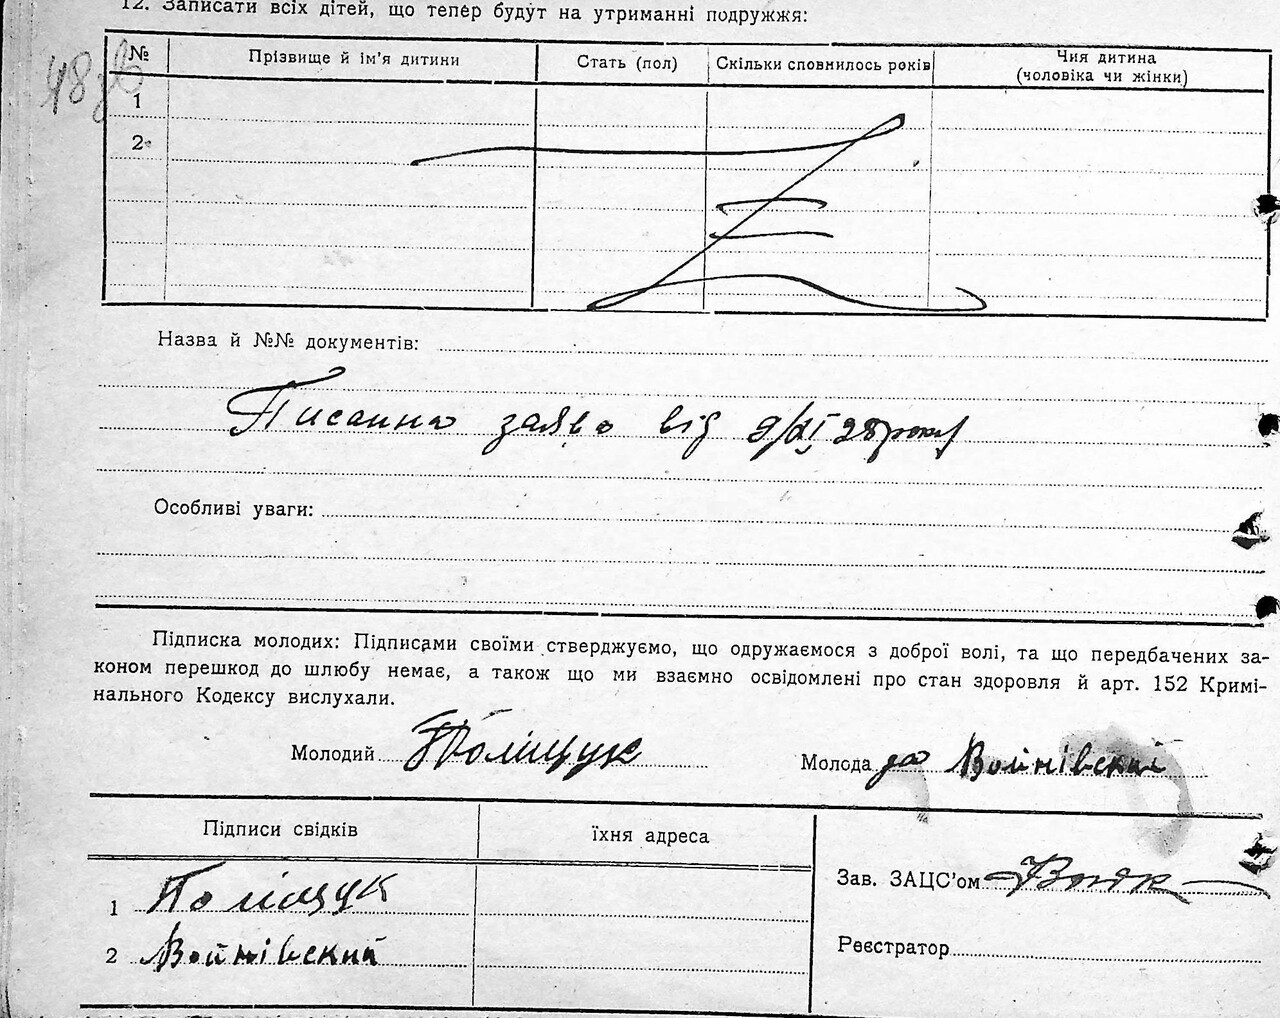 12. Записати всіх дітей, що тепер будут на утриманні подружжя:
№ Прізвище й ім'я дитини Стать (пол) Скільки сповнилось років Чия дитина
(чоловіка чи жінки)
1
2
Назва й №№ документів:
Писанна заява від 9/XI 28 року
Особливі уваги:
Підписка молодих: Підписами своїми стверджуємо, що одружаємося з доброї волі, та що передбачених за-
коном перешкод до шлюбу немає, а також що ми взаємно освідомлені про стан здоровля й арт. 152 Кримі-
нального Кодексу вислухали.
Молодий Поліщук Молода за Войнівский
Підписи свідків їхня адреса
Зав. ЗАЦС'ом
1 Поліщук
Реєстратор
2 Войнівский